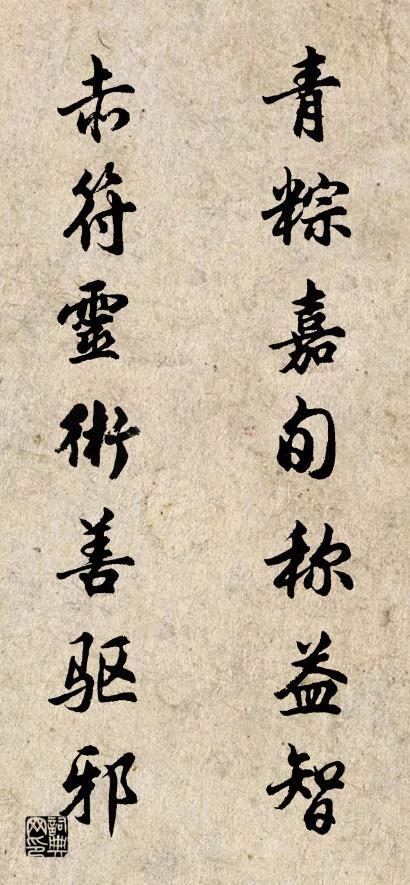 青粽嘉旬称益智
赤符靈術善驱邪
詞典网印